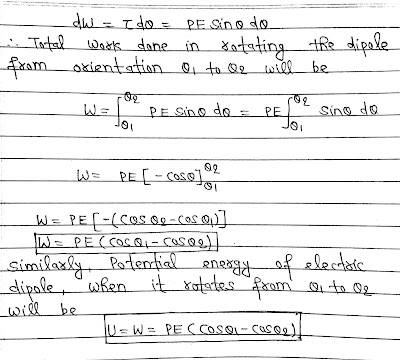 dW = τdθ = PE Sinθ dθ
∴ Total work done in rotating the dipole
from orientation θ1 to θ2 will be
W = ∫θ1^θ2 PE Sinθ dθ = PE ∫θ1^θ2 Sinθ dθ
W = PE [-cosθ]θ1^θ2
W = PE [-(cosθ2-cosθ1)]
W = PE (cosθ1-cosθ2)
Similarly, Potential energy of electric
dipole, when it rotates from θ1 to θ2
will be
U = W = PE (cosθ1-cosθ2)